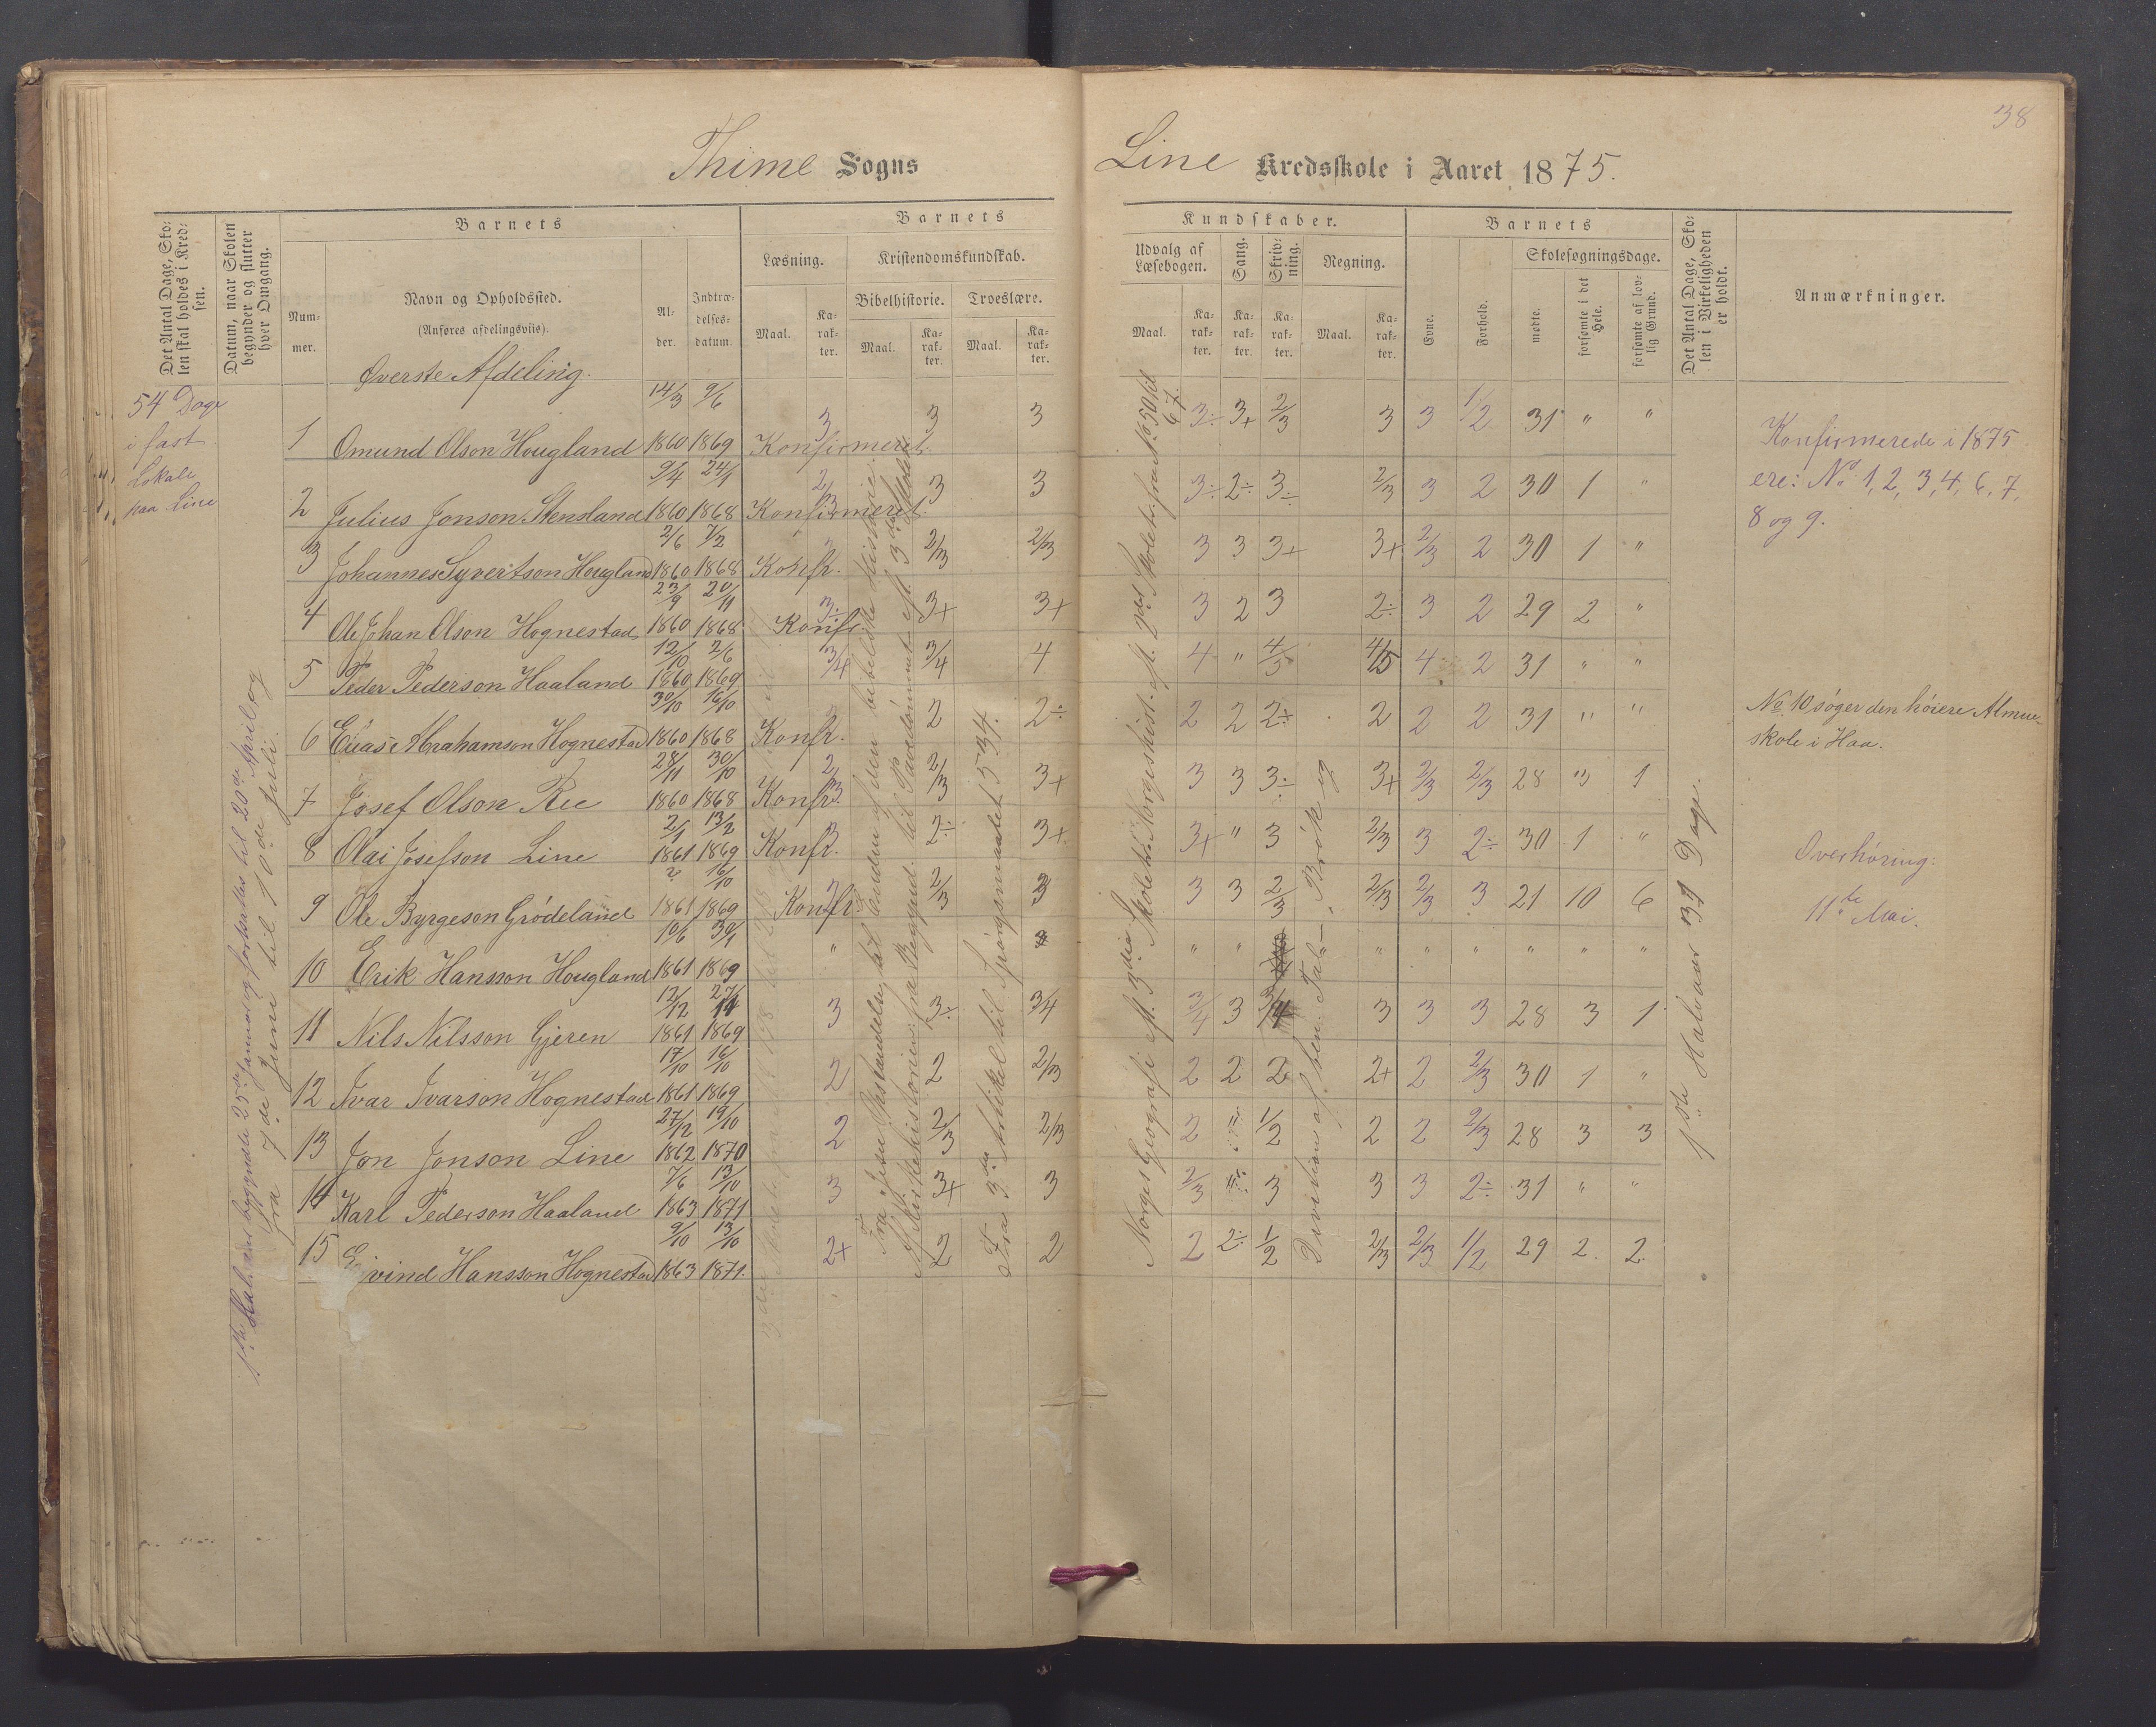 38
Thime Sogns
Line Kredsskole i Aaret 1875.
Det Antal Dage, Skolen skal holdes i Kredsen.
Datum, naar Skolen begynder og slutter hver Omgang.
Barnets
Nummer.
Navn og Opholdssted.
(Anføres afdelingsviis).
Alder.
Indtrædelsesdatum.
Barnets
Kundskaber.
Læsning.
Maal.
Karakter.
Kristendomskundskab.
Bibelhistorie.
Maal.
Karakter.
Troeslære.
Maal.
Karakter.
Udvalg af Læsebogen.
Maal.
Karakter.
Sang.
Karakter.
Skrivning.
Karakter.
Regning.
Maal.
Karakter.
Barnets
Evne.
Forhold.
Skolesøgningsdage.
mødte.
forsømte i det Hele.
forsømte af lovlig Grund.
Det Antal Dage, Skolen i Virkeligheden er holdt.
Anmærkninger.
Øverste Afdeling.
54 Dage
i fast
Lokale
paa Line
1 Omund Olson Hougland 14/3 1860 9/6 1869 Konfirmeret. 3 3 3 3÷ 3+ 2/3 3 3 1/2 31 " "
2 Julius Jonson Stensland 9/4 1860 24/1 1868 Konfirmeret. 2/3 3 3 3÷ 2÷ 3÷ 2/3 3 2 30 1 "
3 Johannes Syvertson Hougland 2/6 1860 7/2 1868 Konfr. 2/3 2/3 3 3 3+ 3+ 2/3 2 30 1 "
4 Ole Johan Olson Hognestad 23/9 1860 20/11 1868 Konfr 3÷ 3+ 3+ 3 2 3 2÷ 3 2 29 2 "
5 Peder Pederson Haaland 12/10 1860 2/6 1869 3/4 3/4 4 4 " 4/5 4/5 4 2 31 " "
6 Elias Abrahamson Hognestad 30/10 1860 16/10 1868 Konfr. 2 2÷ 2 2 2÷ 2 2 2 31 " "
7 Josef Olson Ree 28/11 1860 30/10 1868 Konfr. 2/3 2/3 3+ 3 3 3÷ 3+ 2/3 2/3 28 3 1
8 Olai Josefson Line 2/1 1861 13/2 1869 Konfr. 2÷ 3+ 3+ " 3 2/3 3 2÷ 30 1 "
9 Ole Byrgeson Grödeland ? 1861 16/10 1869 Konfr. 2/3 3 3 3 2/3 2/3 2/3 3 21 10 6
10 Erik Hansson Hougland 10/6 1861 30/1 1869 " " " " " " " " "
11 Nils Nilsson Gjeren 12/12 1861 27/11 1869 3 3÷ 3/4 3/4 3 3/4 3 3 3 28 3 1
12 Ivar Ivarson Hognestad 17/10 1861 16/10 1869 2 2 2/3 2 2 2 2+ 2 2/3 30 1 "
13 Jon Jonson Line 27/12 1862 19/10 1870 2 2/3 2/3 2 " 1/2 2 2 2/3 28 3 3
14 Karl Pederson Haaland 7/6 1863 13/10 1871 3 3+ 3 2/3 " 3 3 3 2÷ 31 " "
15 Eivind Hansson Hognestad 9/10 1863 13/10 1871. 2+ 2 2 2 2÷ 1/2 2/3 2/3 1/2 29 2. 2.
1ste Halvaar begyndte 25de Januar og fortsattes til 20de April og
fra 7de Juni til 10de Juli.
Fra Jesu Opstandelse til Enden af den bibelske Historie.
Af Kirkehistorien fra Begynd. til Pavedömmet eft. 3die Skoleb.
Fra 3die Artikel til Spörgsmaalet 534.
Norges Geografi eft. 3die Skoletr. Norgeshist. eft. 2det Skoletr. fra No. 50 til
67.
Division af ben. Tal – Brök og
1ste Halvaar 31 Dage.
Konfirmerede i 1875
ere: No. 1, 2, 3, 4, 6, 7,
8 og 9.
No. 10 söger den höiere Almue-
skole i Haa.
Overhöring:
11te Mai.